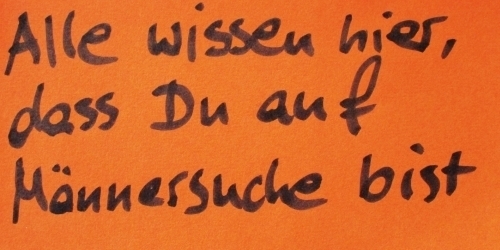 Alle wissen hier,
dass Du auf
Männersuche bist